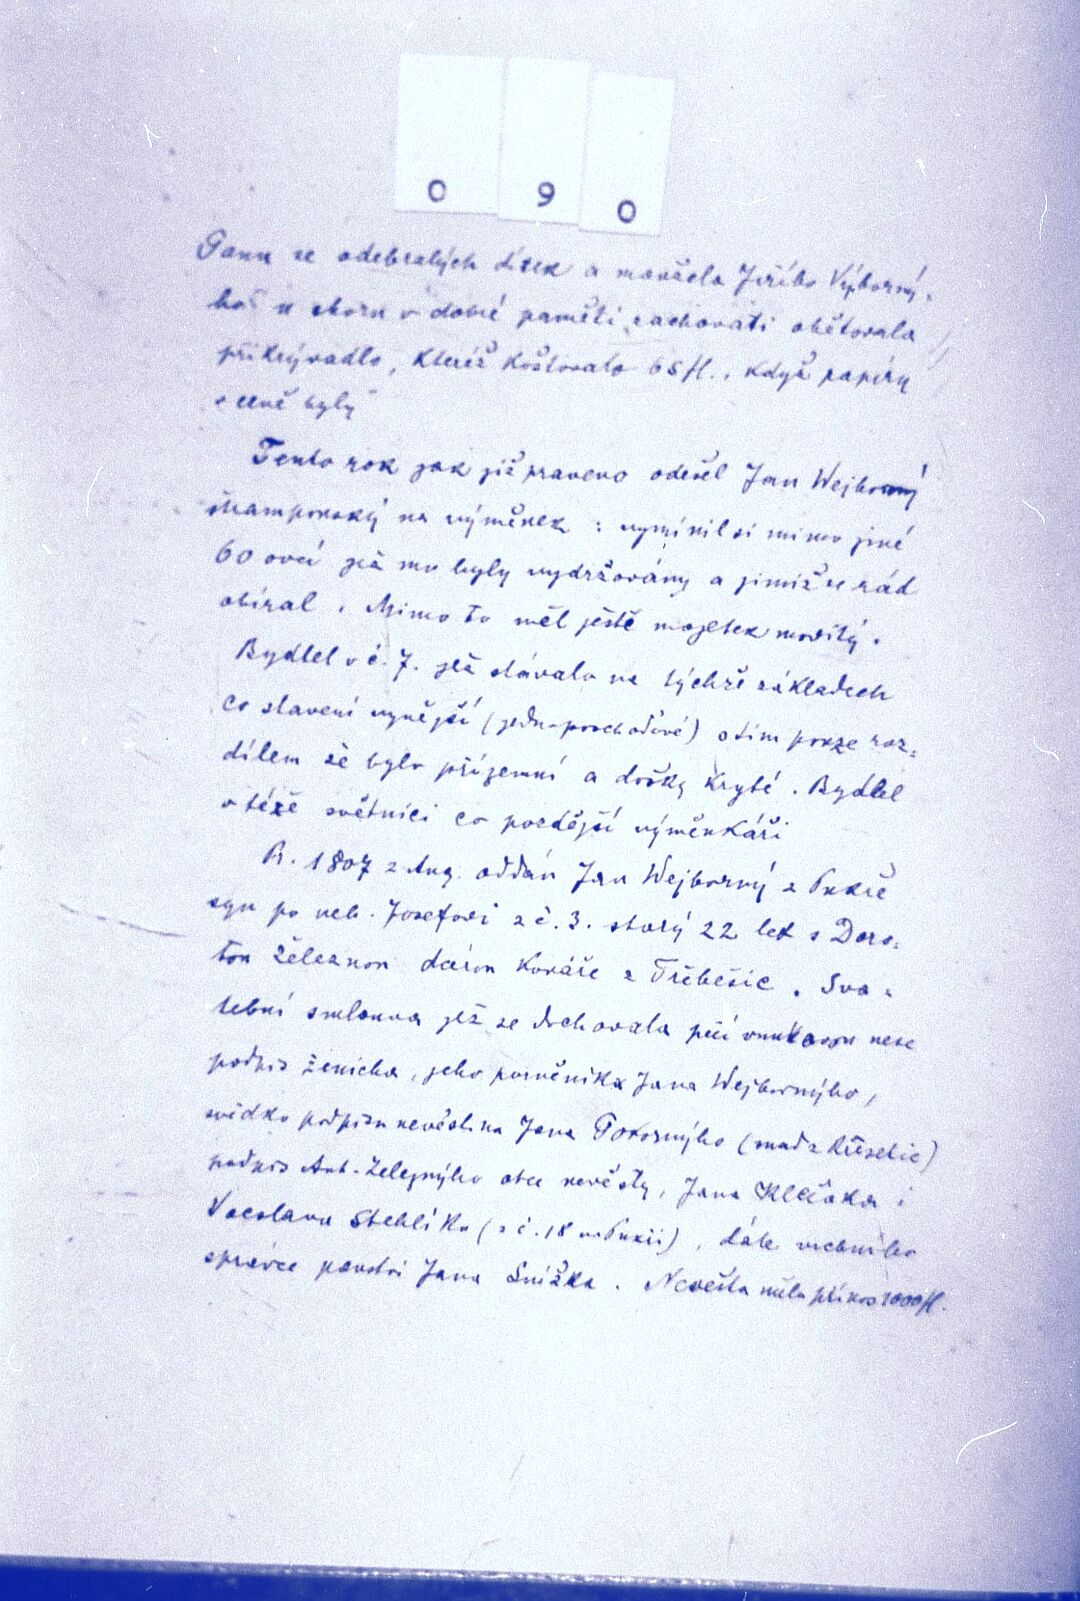 0 9 0
Pánu se odebralých dítek a manžela Jiřího Výborný-
ho u sboru v dobré paměti zachovati obětovala
přikrývadlo, kteréž koštovalo 65 fl., když papíry
v ceně byly
Tento rok jak již praveno odešel Jan Wejborný
na výměnek : vymínil si mimo jiné
60 ovcí jež mu byly vydržovány a jimiž se rád
obíral. Mimo to měl ještě majetek movitý.
Bydlel v č. 7. jež stávalo na týchže základech
co stavení nynější (jednoposchoďové) s tím pouze roz-
dílem že bylo přízemní a došky kryté. Bydlel
v téže světnici co pozdější výměnkáři
R. 1807 2 Aug. oddán Jan Wejborný z
syn po neb. Josefovi z č. 3. starý 22 let s Doro-
tou Železnou dcerou kováře z Třebešic. Sva-
tební smlouva jež se dochovala péčí vnukovou nese
podpis ženicha, jeho poručníka Jana Wejborného,
svědka podpisu nevěstina Jana Pokorného (snad z
podpis Ant. Železnýho otce nevěsty, Jana i
Václava Stehlíka (z č. 18 v ), dále vrchního
správce panství Jana Snížka. Nevěsta měla přínos 1000 fl.